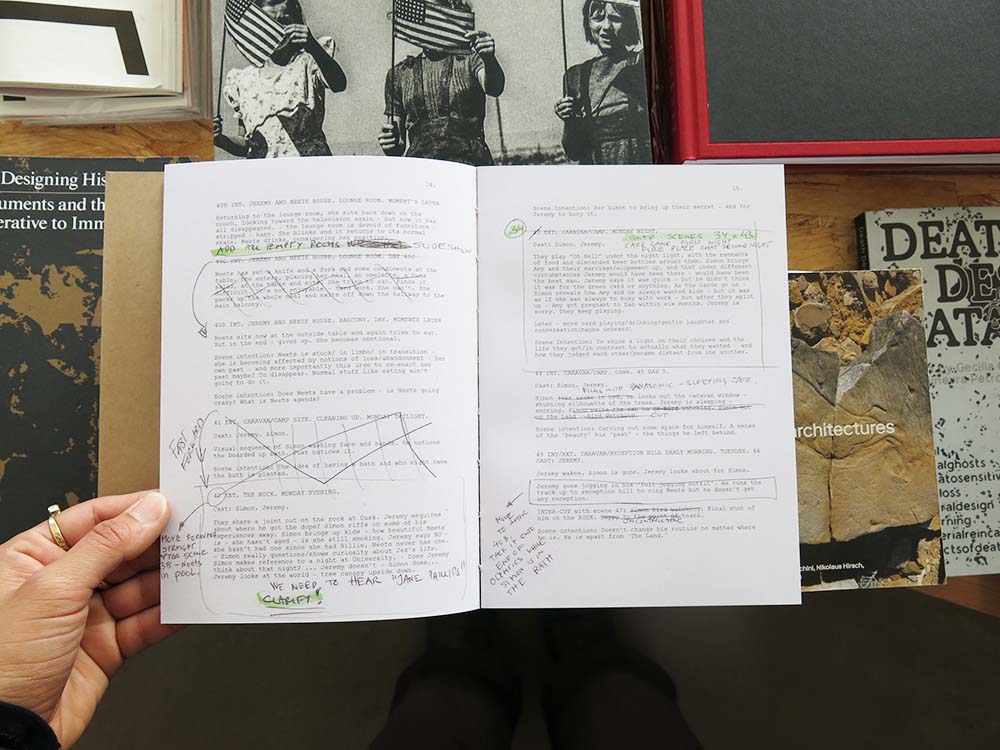 Designing His
uments and th
erative to Imm
14.
40B INT. JEREMY AND NEETS HOUSE. LOUNGE ROOM. MOMENT'S LATER
Returning to the lounge room, she sits back down on the
couch, looking toward the television again - but now it has
all disappeared. - the lounge room is devoid of furniture -
stripped - bare. She blinks and it returns to its normal
state. Neets drinks, considering her position.
ADD ALL EMPTY ROOMS SLIDESHOW
40C INT. JEREMY AND NEETS HOUSE. LOUNGE ROOM. DAY
Neets has got a knife and a fork and some condiments at the
table, she enters, placing her meal, an omelette, & tues
salad, at the table and sits. She tries to eat. Finds it
difficult, it's not enjoyable. Tries again. She can't. She
packs up the whole meal and exits off down the hallway to the
main balcony.
40D INT. JEREMY AND NEETS HOUSE. BALCONY. DAY. MOMENTS LATER
Neets sits now at the outside table and again tries to eat.
But in the end - gives up. She becomes emotional.
Scene intention: Neets is stuck/ in limbo/ in transition -
she is becoming affected by notions of loss/abandonment - her
own past - and more importantly this urge to re-enact her
past maybe? To disappear. Normal stuff like eating ain't
going to do it.
Scene intention: Does Neets have a problem - is Neets going
crazy? What is Neets agenda?
FAST FORWARD
41 EXT. CARAVAN/CAMP SITE. CLEANING UP. MONDAY TWILIGHT.
Cast: Jeremy. Simon.
Visual sequence of Simon washing face and hands. He notices
the boarded up bath. Just notices it.
Scene intention: The idea of having a bath and who might have
the bath is planted.
42 EXT. THE ROCK. MONDAY EVENING.
Cast: Simon. Jeremy.
They share a joint out on the rock at Dusk. Jeremy enquires
about where he got the dope? Simon riffs on some of his
experiences away. Simon brings up kids - how beautiful Neets
is - she hasn't aged - is she still smoking. Jeremy says NO -
she hasn't had one since she had Billie, Neets never has one.
- Simon really questions/shows curiosity about Jez's life.
Simon makes reference to a night at University. - Does Jeremy
think about that night? ... Jeremy doesn't - Simon does...
Jeremy looks at the world - tree canopy upside down.
MOVE FORWARD
STRAIGHT
AFTER SCENE
38 - NEETS
IN POOL.
WE NEED TO HEAR "JANE PHILLIPS"
CLARIFY!
15.
Scene Intention: For Simon to bring up their secret - and for
Jeremy to bury it.
34
43 EXT. CARAVAN/CAMP. MONDAY NIGHT.
SCENES 34 & 43
Cast: Simon. Jeremy.
CARD GAME FIRST NIGHT
FIRE PLACE CHAT SECOND NIGHT
They play "Oh Hell" under the night light, with the remnants
of food and discarded beer bottles and ashes. Simon brings
Any and their marriage/elopement up, and that under different
circumstances Jeremy would have been there - would have been
the best man. Jeremy says it was quick - he didn't think
it was for the green card or anything. As the cards go on -
Simon reveals how Amy and he always wanted kids but it was
as if she was always to busy with work - but after they split
up - Any got pregnant to Dan within six months. Jeremy is
sorry. They keep playing.
Later - more card playing/drinking/gentle laughter and
conversation(maybe unheard)
Scene Intention: To shine a light on their choices and the
life they got/in contrast to actually what they wanted - and
how they judged each other/became distant from one another.
44 INT. CARAVAN/CAMP. DAWN. 45 DAY 5.
Cast: Simon. Jeremy.
FILMS WITH PANASONIC - SLEEPING JEZ.
Simon films awake in bed, he looks out the caravan window -
stunning silhouette of the trees. Jeremy is sleeping -
snoring. Simon exits the van to go bird watching. Simon out
on the Land - Bird Watching. CUT
Scene intention: Carving out some space for himself. A sense
of the 'beauty' his 'past' - the things he left behind.
45 INT/EXT. CARAVAN/RECEPTION HILL EARLY MORNING. TUESDAY. 46
CAST: JEREMY.
Jeremy wakes. Simon is gone. Jeremy looks about for Simon.
Jeremy goes jogging in his 'full jogging outfit'. He runs the
track up to reception hill to ring Neets but he doesn't get
any reception.
INTER-CUT with scene 47: Simon bird watching. Final shot of
him on the ROCK. Happy to the point of tears.
UNCONTROLLABLE
Scene intention: Doesn't change his routine no matter where
he is. He is apart from 'The Land.'
MOVE
TO AFTER
46D
TACK IT ONTO
END OF
OLYMPICS W/
SIMON IS IN
THE BATH
architectures
chini, Nikolaus Hirsch,
DEAT
DE
ATA
Cecilia
Petre
alghosts
oloss
ealdesign
erning
terialreinca
actsofdea